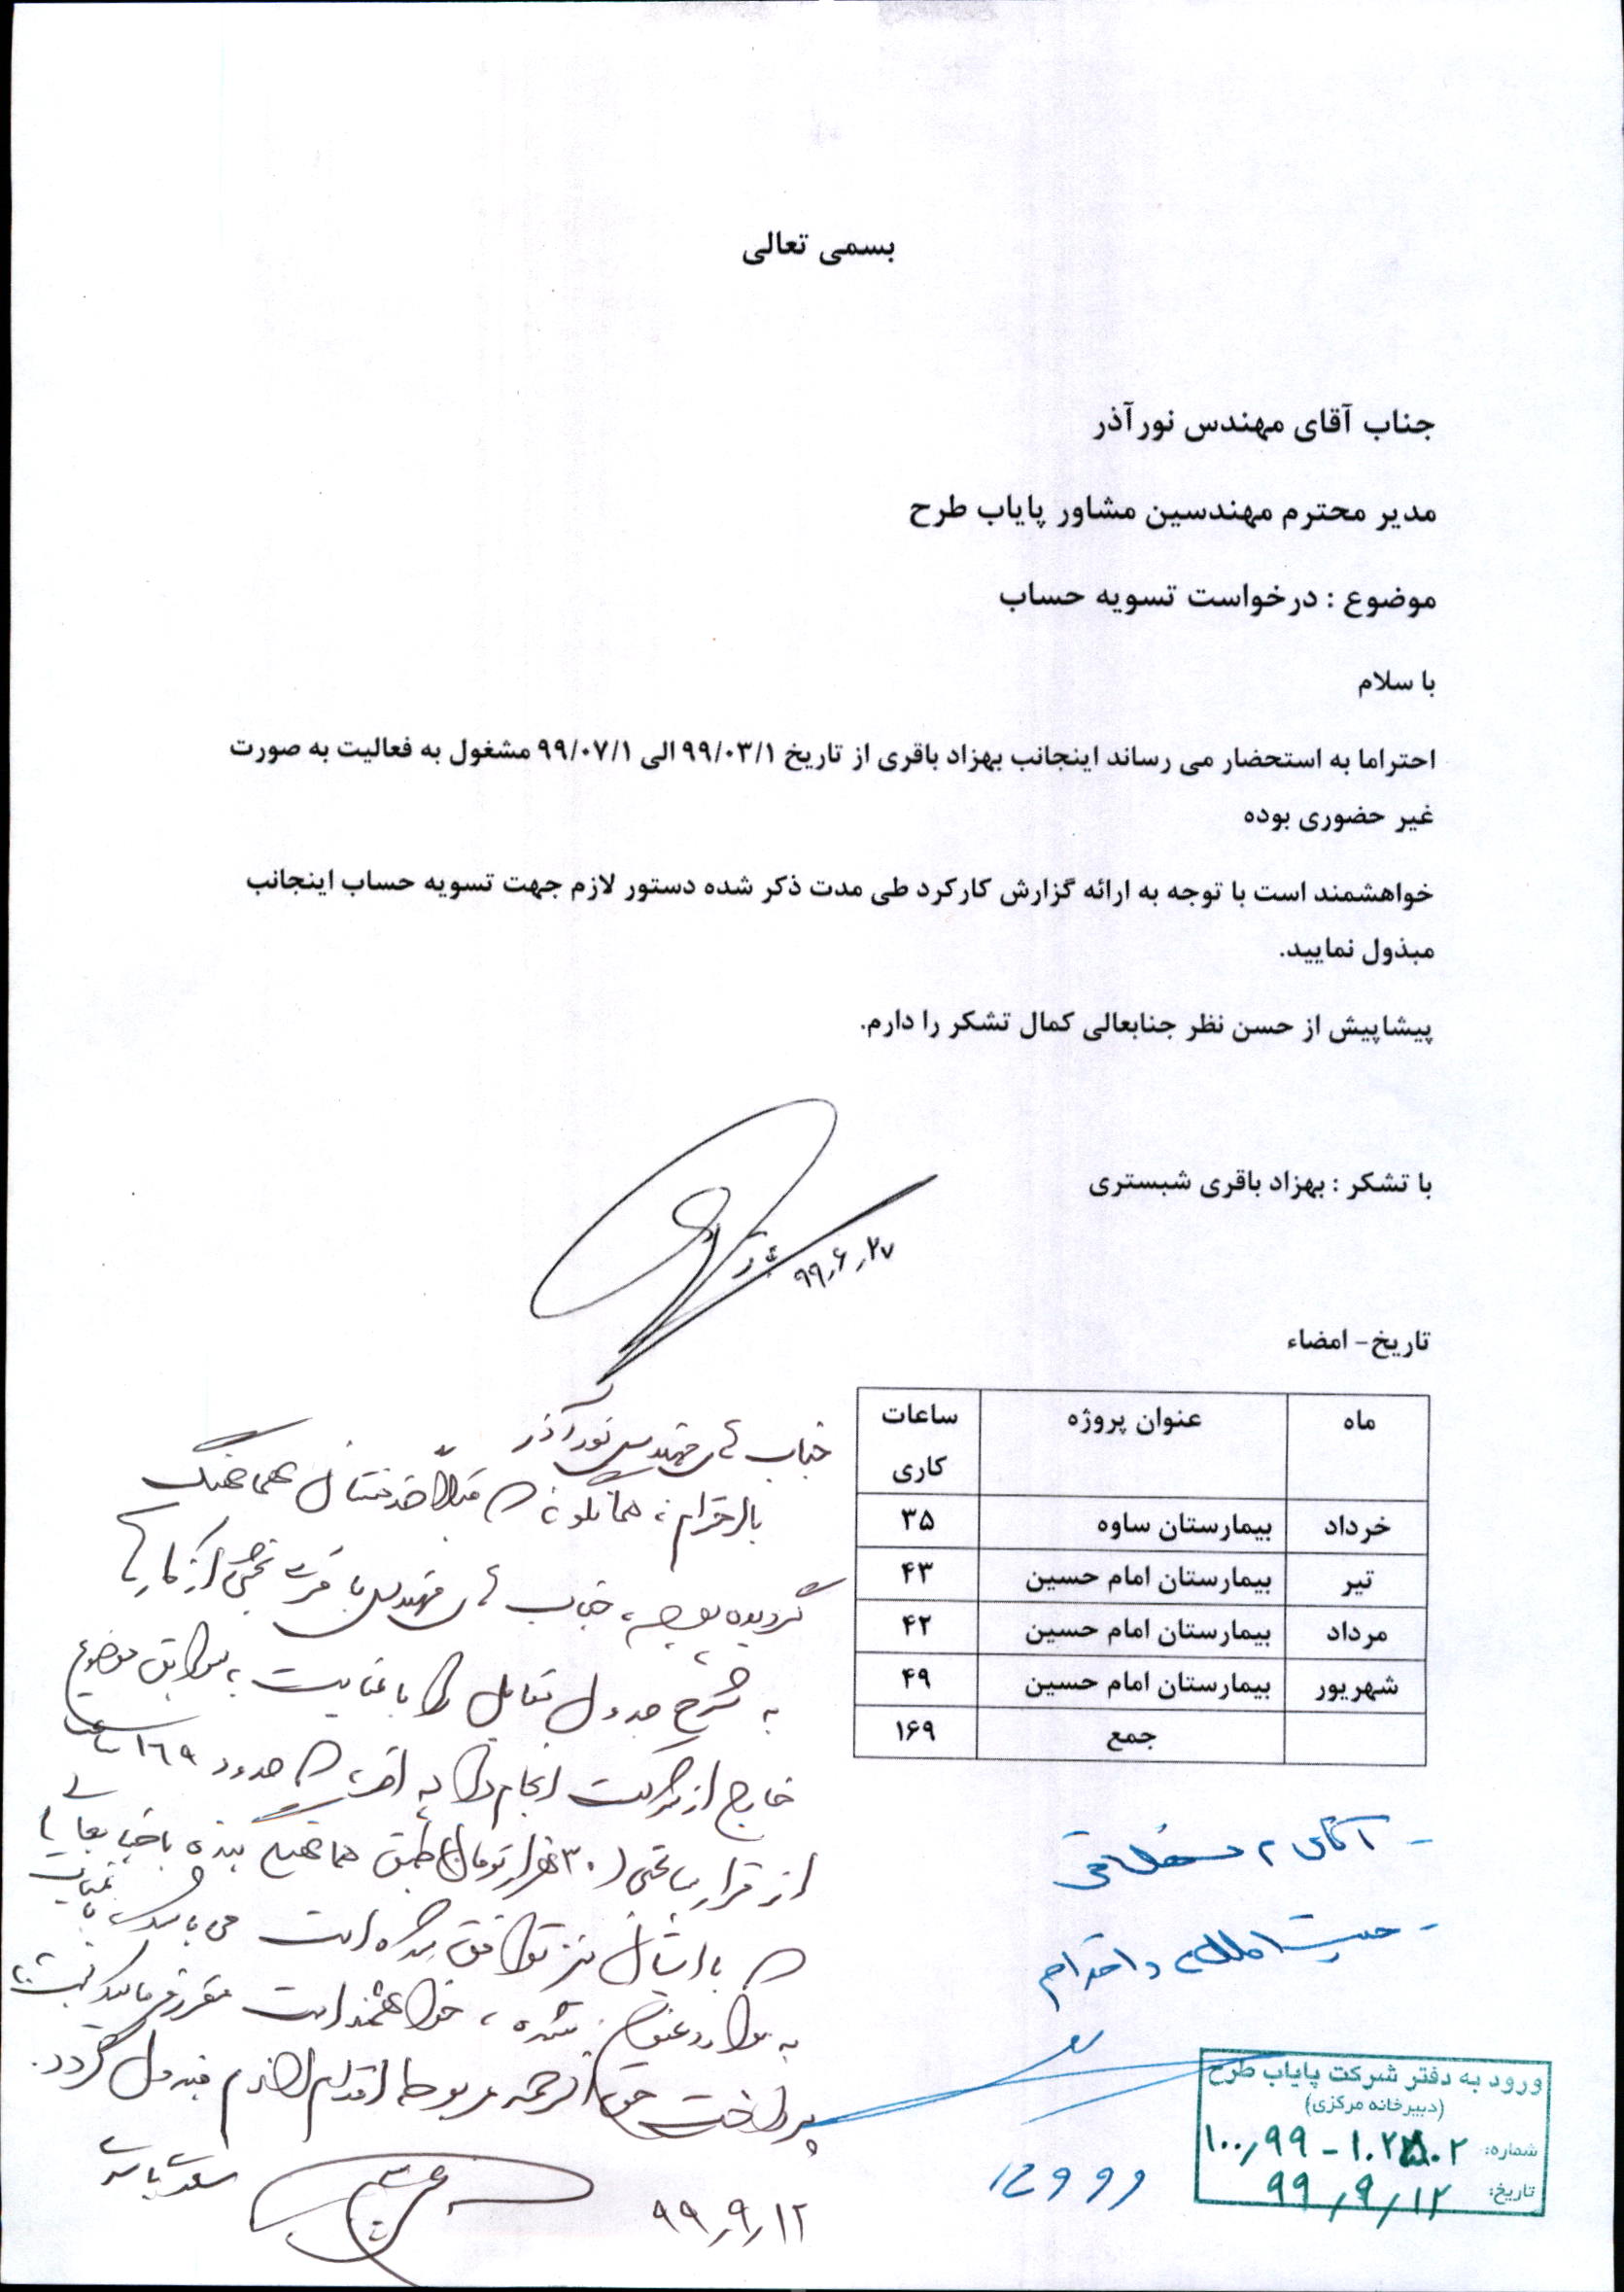 بسمی تعالی
جناب آقای مهندس نورآذر
مدیر محترم مهندسین مشاور پایاب طرح
موضوع : درخواست تسویه حساب
با سلام
احتراما به استحضار می رساند اینجانب بهزاد باقری از تاریخ ۹۹/۰۳/۱ الی ۹۹/۰۷/۱ مشغول به فعالیت به صورت
غیر حضوری بوده
خواهشمند است با توجه به ارائه گزارش کارکرد طی مدت ذکر شده دستور لازم جهت تسویه حساب اینجانب
مبذول نمایید.
پیشاپیش از حسن نظر جنابعالی کمال تشکر را دارم.
با تشکر : بهزاد باقری شبستری
۹۹٫۶٫۲۷
تاریخ- امضاء
ماه عنوان پروژه ساعات
کاری
خرداد بیمارستان ساوه ۳۵
تیر بیمارستان امام حسین ۴۳
مرداد بیمارستان امام حسین ۴۲
شهریور بیمارستان امام حسین ۴۹
جمع ۱۶۹
جناب آقای مهندس نورآذر
بااحترام، همانگونه که قبلاً خدمتتان هماهنگ
گردیده بود، جناب آقای مهندس باقری بخشی از کارها
به شرح جدول مقابل را با عنایت به سوابق موضوع
خارج از شرکت انجام داده اند، که حدود ۱۶۹ ساعت
از قرار ساعتی (۳۰ هزار تومان) طبق هماهنگی بنده با جنابعالی
که با ایشان نیز توافق شده است می باشد، با عنایت
به موارد عنوان شده، خواهشمند است مقرر فرمایید نسبت به
پرداخت حق الزحمه مربوطه اقدام لازم مبذول گردد.
۹۹٫۹٫۱۲
- آقای
- جهت اطلاع و اقدام
ورود به دفتر شرکت پایاب طرح
(دبیرخانه مرکزی)
شماره:
تاریخ: ۹۹٫۹٫۱۲